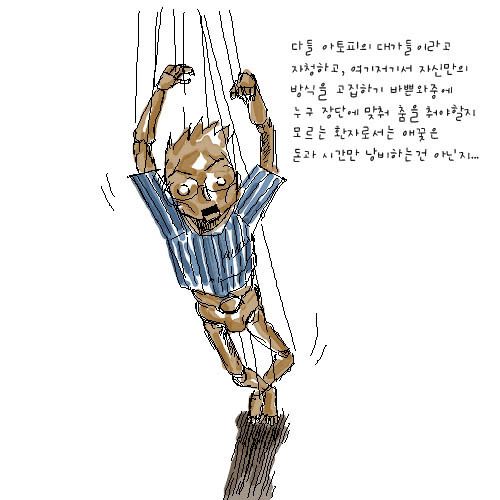 다들 아토피의 대가들이라고
자청하고, 여기저기서 자신만의
방식을 고집하기 바쁜와중에
누구 장단에 맞춰 춤을 춰야할지
모르는 환자로서는 애꿎은
돈과 시간만 낭비하는건 아닌지...